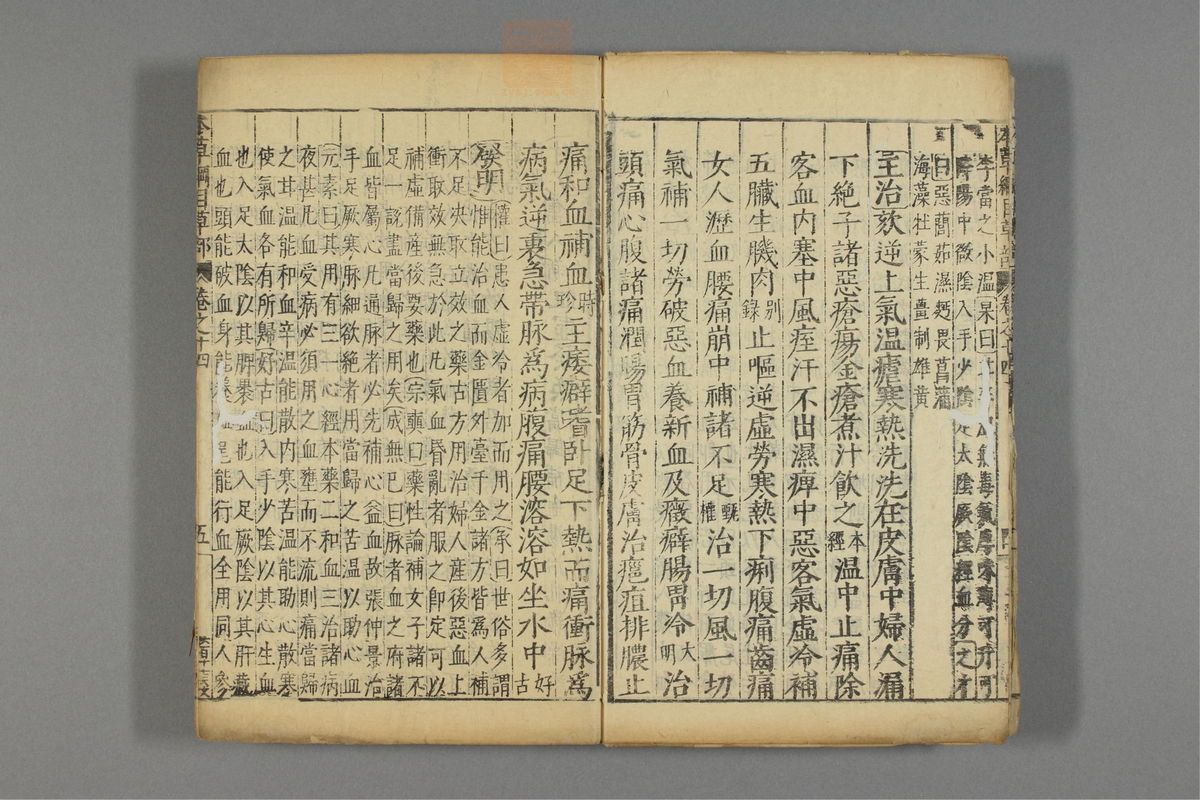 李當之小溫杲曰
氣毒氣厚味薄可升可
降陽中微陰入手少陰足太陰厥陰經血分之才
曰惡䕡茹濕麪畏菖蒲
海藻牡蒙生薑制雄黃
主治欬逆上氣溫瘧寒熱洗洗在皮膚中婦人漏
下絶子諸惡瘡瘍金瘡煮汁飲之本經溫中止痛除
客血内塞中風痓汗不出濕痺中惡客氣虛冷補
五臟生肌肉别錄止嘔逆虛勞寒熱下痢腹痛齒痛
女人瀝血腰痛崩中補諸不足甄權治一切風一切
氣補一切勞破惡血養新血及癥癖腸胃冷大明治
頭痛心腹諸痛潤腸胃筋骨皮膚治癰疽排膿止
痛和血補血時珍主痿癖嗜卧足下熱而痛衝脉爲
病氣逆裏急帶脉爲病腹痛腰溶溶如坐水中好古
發明權曰患人虛冷者加而用之承曰世俗多謂
惟能治血而金匱外臺千金諸方皆爲人補
不足决取立效之藥古方用治婦人産後惡血上
衝取效無急於此凡氣血昏亂者服之即定可以
補虛備産後要藥也宗奭曰藥性論補女子諸不
足一説盡當歸之用矣成無已曰脉者血之府諸
血皆屬心凡通脉者必先補心益血故張仲景治
手足厥寒脉細欲絶者用當歸之苦溫以助心血
元素曰其用有三一心經本藥二和血三治諸病
夜甚凡血受病必須用之血壅而不流則痛當歸
之甘溫能和血辛溫能散内寒苦溫能助心散寒
使氣血各有所歸好古曰入手少陰以其心生血
也入足太陰以其脾裹血也入足厥陰以其肝藏
血也頭能破血身能養血尾能行血全用同人參
本草綱目草部 卷之十四 五